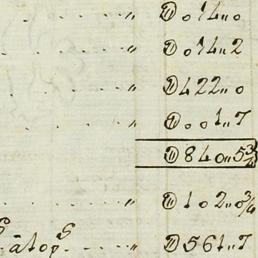 . . . . . „ ⓓ 0 14„0
. . . . . „ ⓓ 0 14„2
. . . . . „ ⓓ 422„0
. . . . . „ ⓓ 0 01„7
ⓓ 840„5¾
. . . . . „ ⓓ 102„0¾
. . . . „ ⓓ 561„7